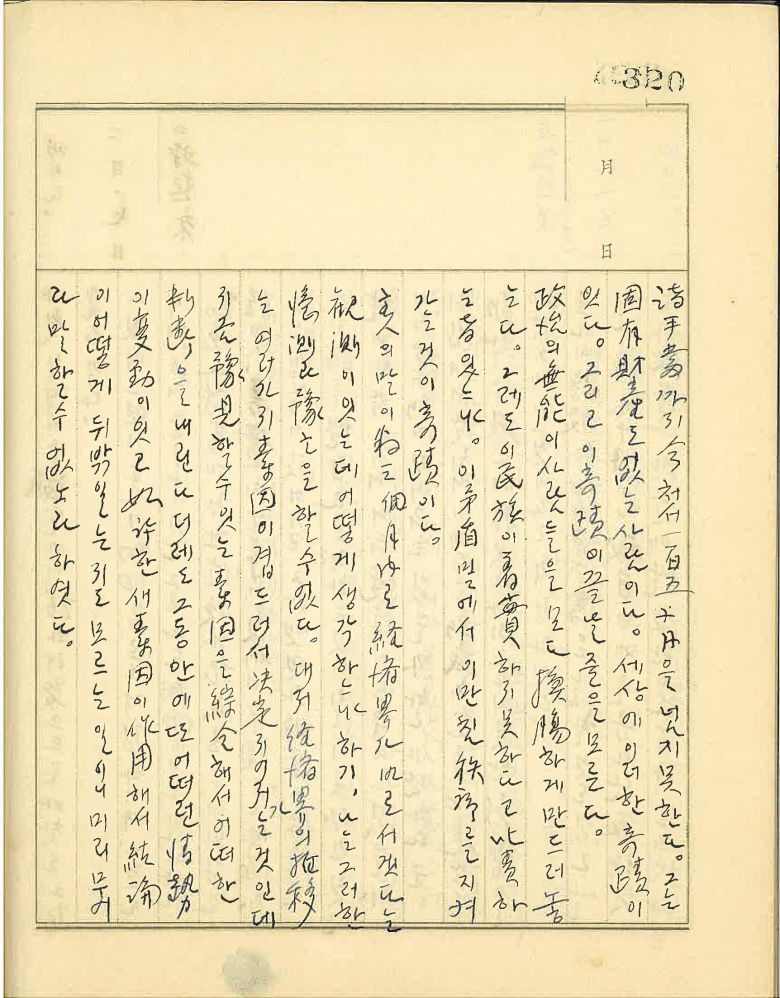 320
月 日
諸手當까지 수 천서 一百五十万을 넘지 못한다. 그는
固有財産도 없는 사람이다. 세상에 이러한 奇蹟이
잇다. 그리고 이 奇蹟이 끝날 줄을 모른다.
政治의 無能이 사람들을 모도 換腸하게 만드러 놓
는다. 그레도 이 民族이 着實하지 못하다고 나무라 하
는 者 잇느냐. 이 矛盾 밑에서 이만침 秩序를 지켜
가는 것이 奇蹟이다.
의 말이 數三個月內로 経済界가 바로서겟다는
観測이 잇는데 어떻게 생각하느냐 하기, 나는 그러한
憶測과 豫言을 할 수 없다. 대저 経済界의 推移
는 여러가지 素因이 겹드러서 決定지어저가는 것인데
지금 豫見할 수 잇는 素因을 綜合해서 어떠한
判斷을 내린다 더레도 그동안에 또 어떠런 情勢
이 変動이 잇고 如許한 새 素因이 作用해서 結論
이 어떻게 뒤밖일는지도 모르는 일이니 미리 무어
라 말할 수 없노라 하엿다.